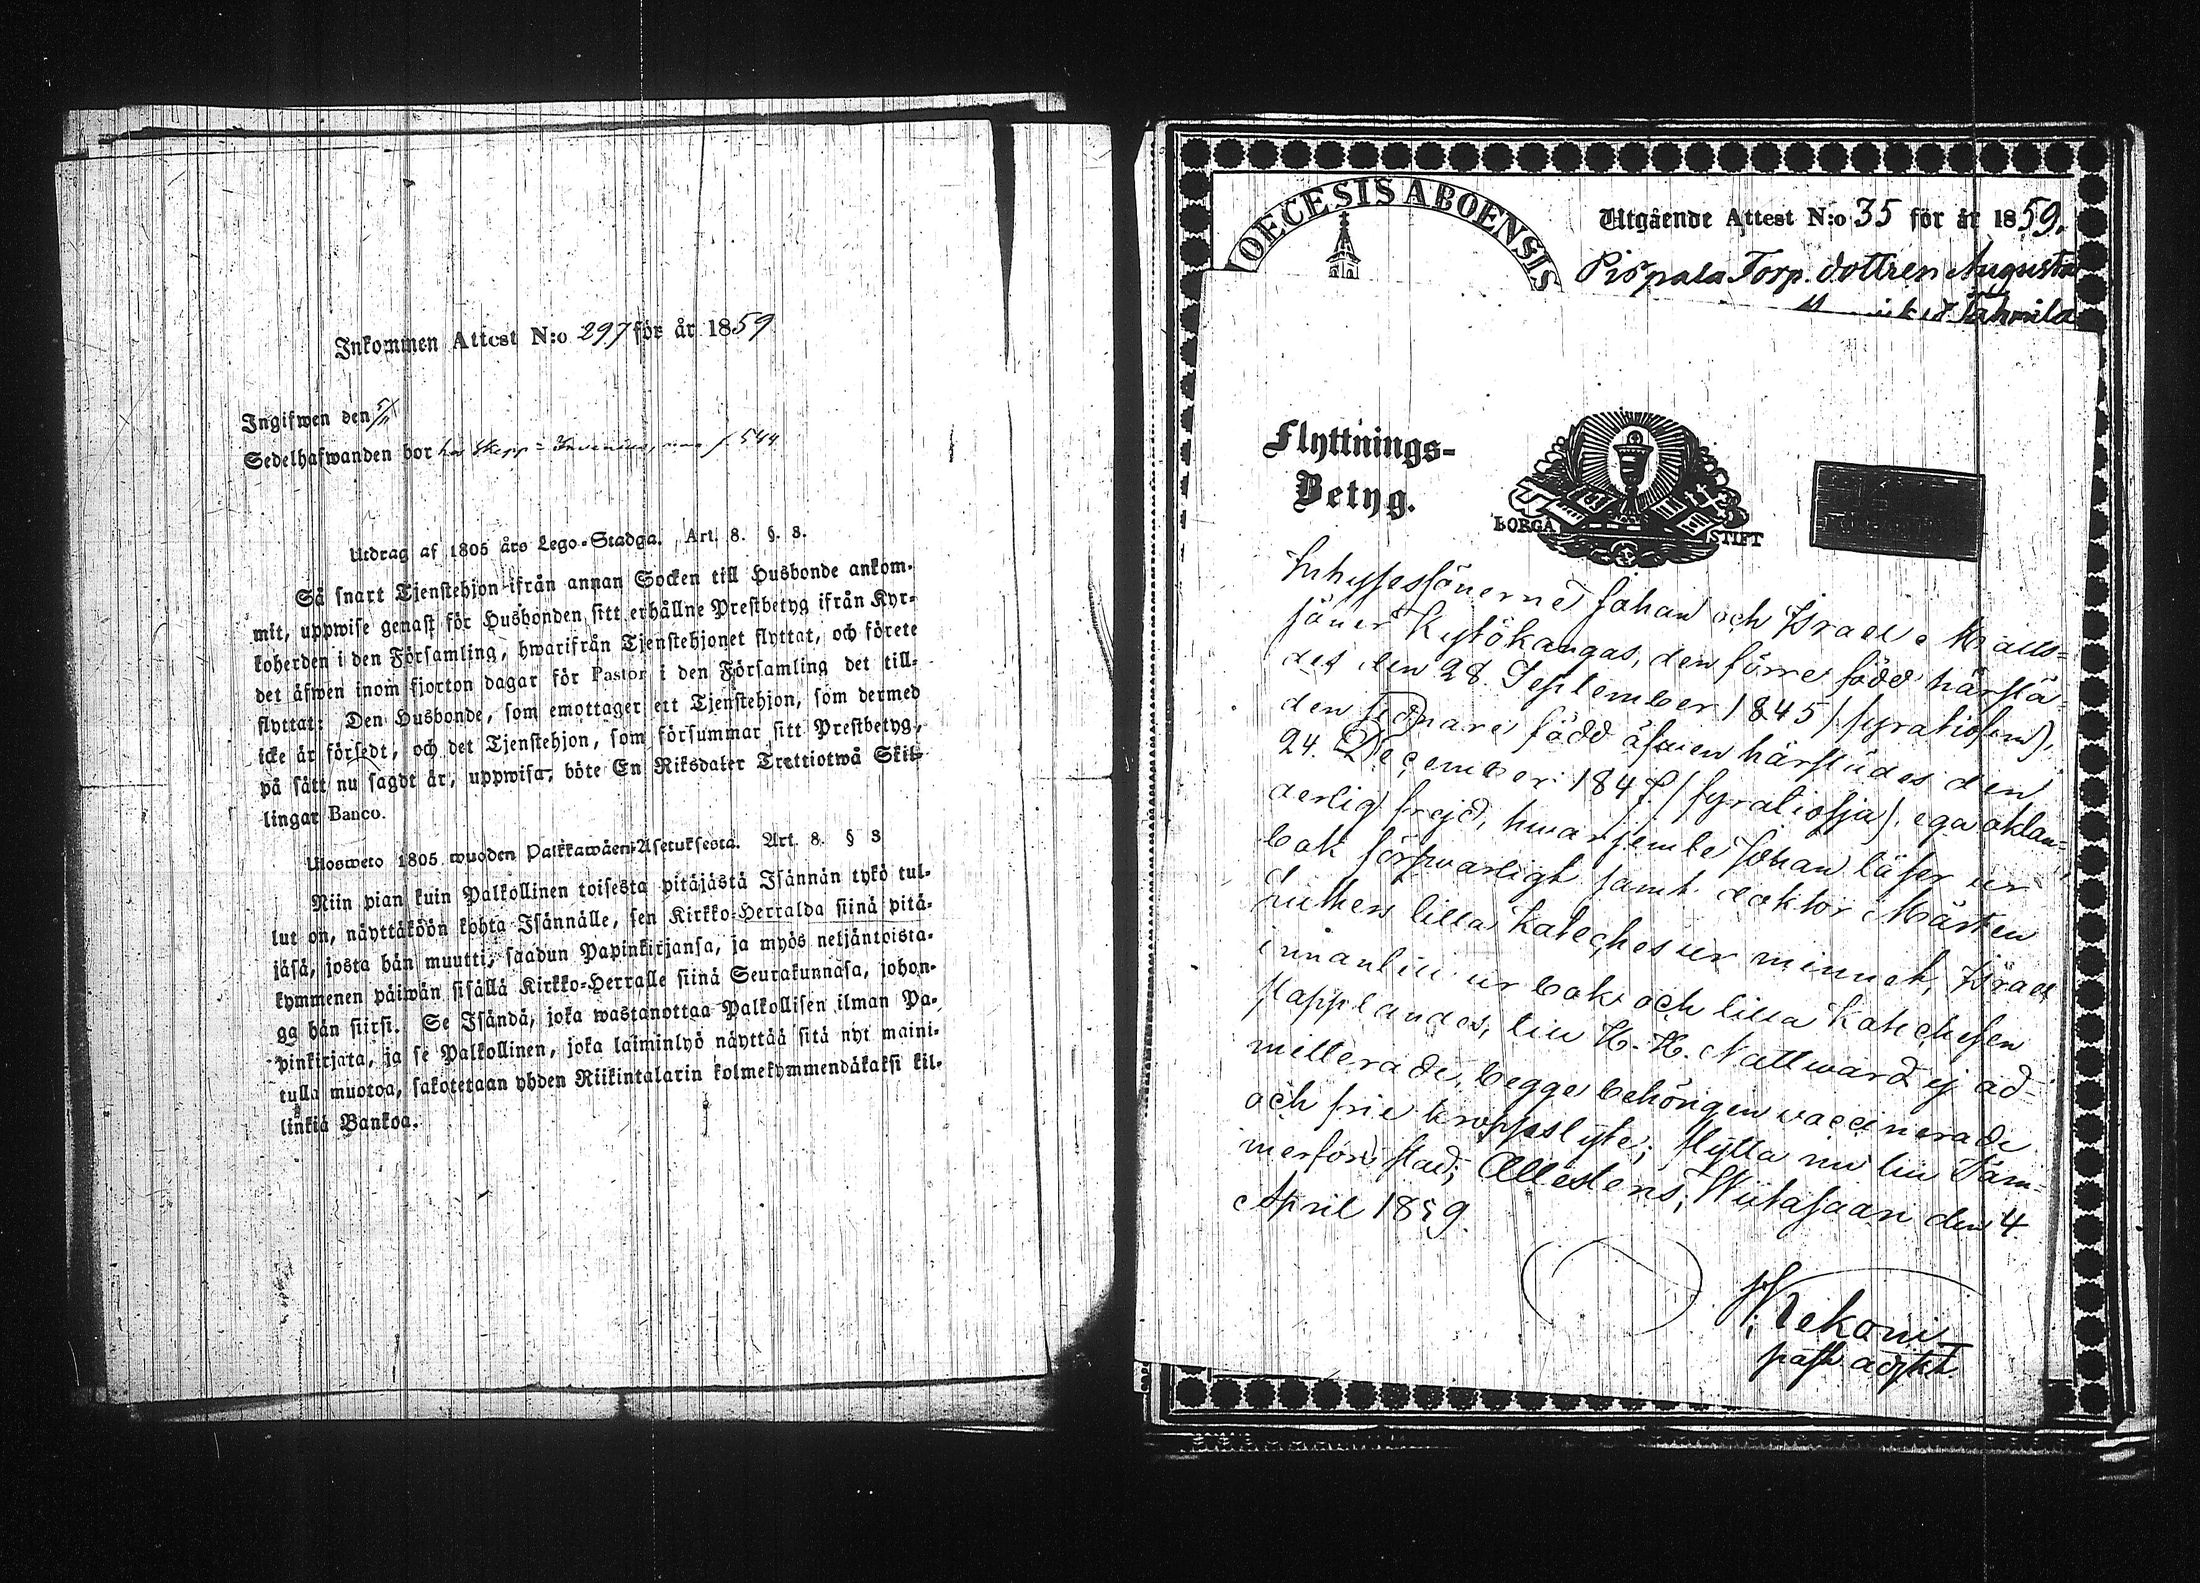 Inkommen Attest N:o 297 för år 1859
Ingifwen den 5/11
Sedelhafwanden bor hos Skepp 544
Utdrag af 1805 års Lego-Stadga. Art. 8. §. 3.
Så snart Tjenstehjon ifrån annan Socken till Husbonde ankom-
mit, uppwise genast för Husbonden sitt erhållne Prestbetyg ifrån Kyr-
koherden i den Församling, hwarifrån Tjenstehjonet flyttat, och förete
det äfwen inom fjorton dagar för Pastor i den Församling det till-
flyttat: Den Husbonde, som emottager ett Tjenstehjon, som dermed
icke är försedt, och det Tjenstehjon, som försummar sitt Prestbetyg,
på sätt nu sagdt är, uppwisa, böte En Riksdaler Trettiotwå Skil-
lingar Banco.
Ulosweto 1805 wuoden Palkkawäen-Asetuksesta. Art. 8. § 3
Niin pian kuin Palkollinen toisesta pitäjästä Isännän tykö tul-
lut on, näyttäköön kohta Isännälle, sen Kirkko-Herralda siinä pitä-
jäsä, josta hän muutti, saadun Papinkirjansa, ja myös neljäntoista-
kymmenen päiwän sisällä Kirkko-Herralle siinä Seurakunnasa, johon-
ga hän siirsi. Se Isändä, joka wastanottaa Palkollisen ilman Pa-
pinkirjata, ja se Palkollinen, joka laiminlyö näyttää sitä nyt maini-
tulla muotoa, sakotetaan yhden Riikintalarin kolmekymmendäkaksi kil-
linkiä Bankoa.
DIOECESIS ABOENSIS
Utgående Attest N:o 35 för år 1859.
Pispala Torp. dottren Augusta
Tahmila
Flyttnings-
Betyg.
BORGÅ STIFT
Inhysessönerne Johan och Israel Matts-
söner Kylökangas, den förre född härstä-
des den 28. September 1845 (fyratiofem),
den sednare född äfwen härstädes den
24. December 1847 (fyratiosju), ega oklan-
derlig frejd, hwarjemte Johan läser ur
bok försvarligt samt doktor Mårten
Luthers lilla Kateches ur minnet, Israel
innantill ur bok och lilla Katechesen
stapplandes, till H. H. Nattward ej ad-
mitterade, begge behörigen vaccinerade
och frie kroppslyte; flytta nu till Tam-
merfors stad; Attesteras, Wiitasaari den 4
April 1859.
W. Kekoni
past. adjkt.